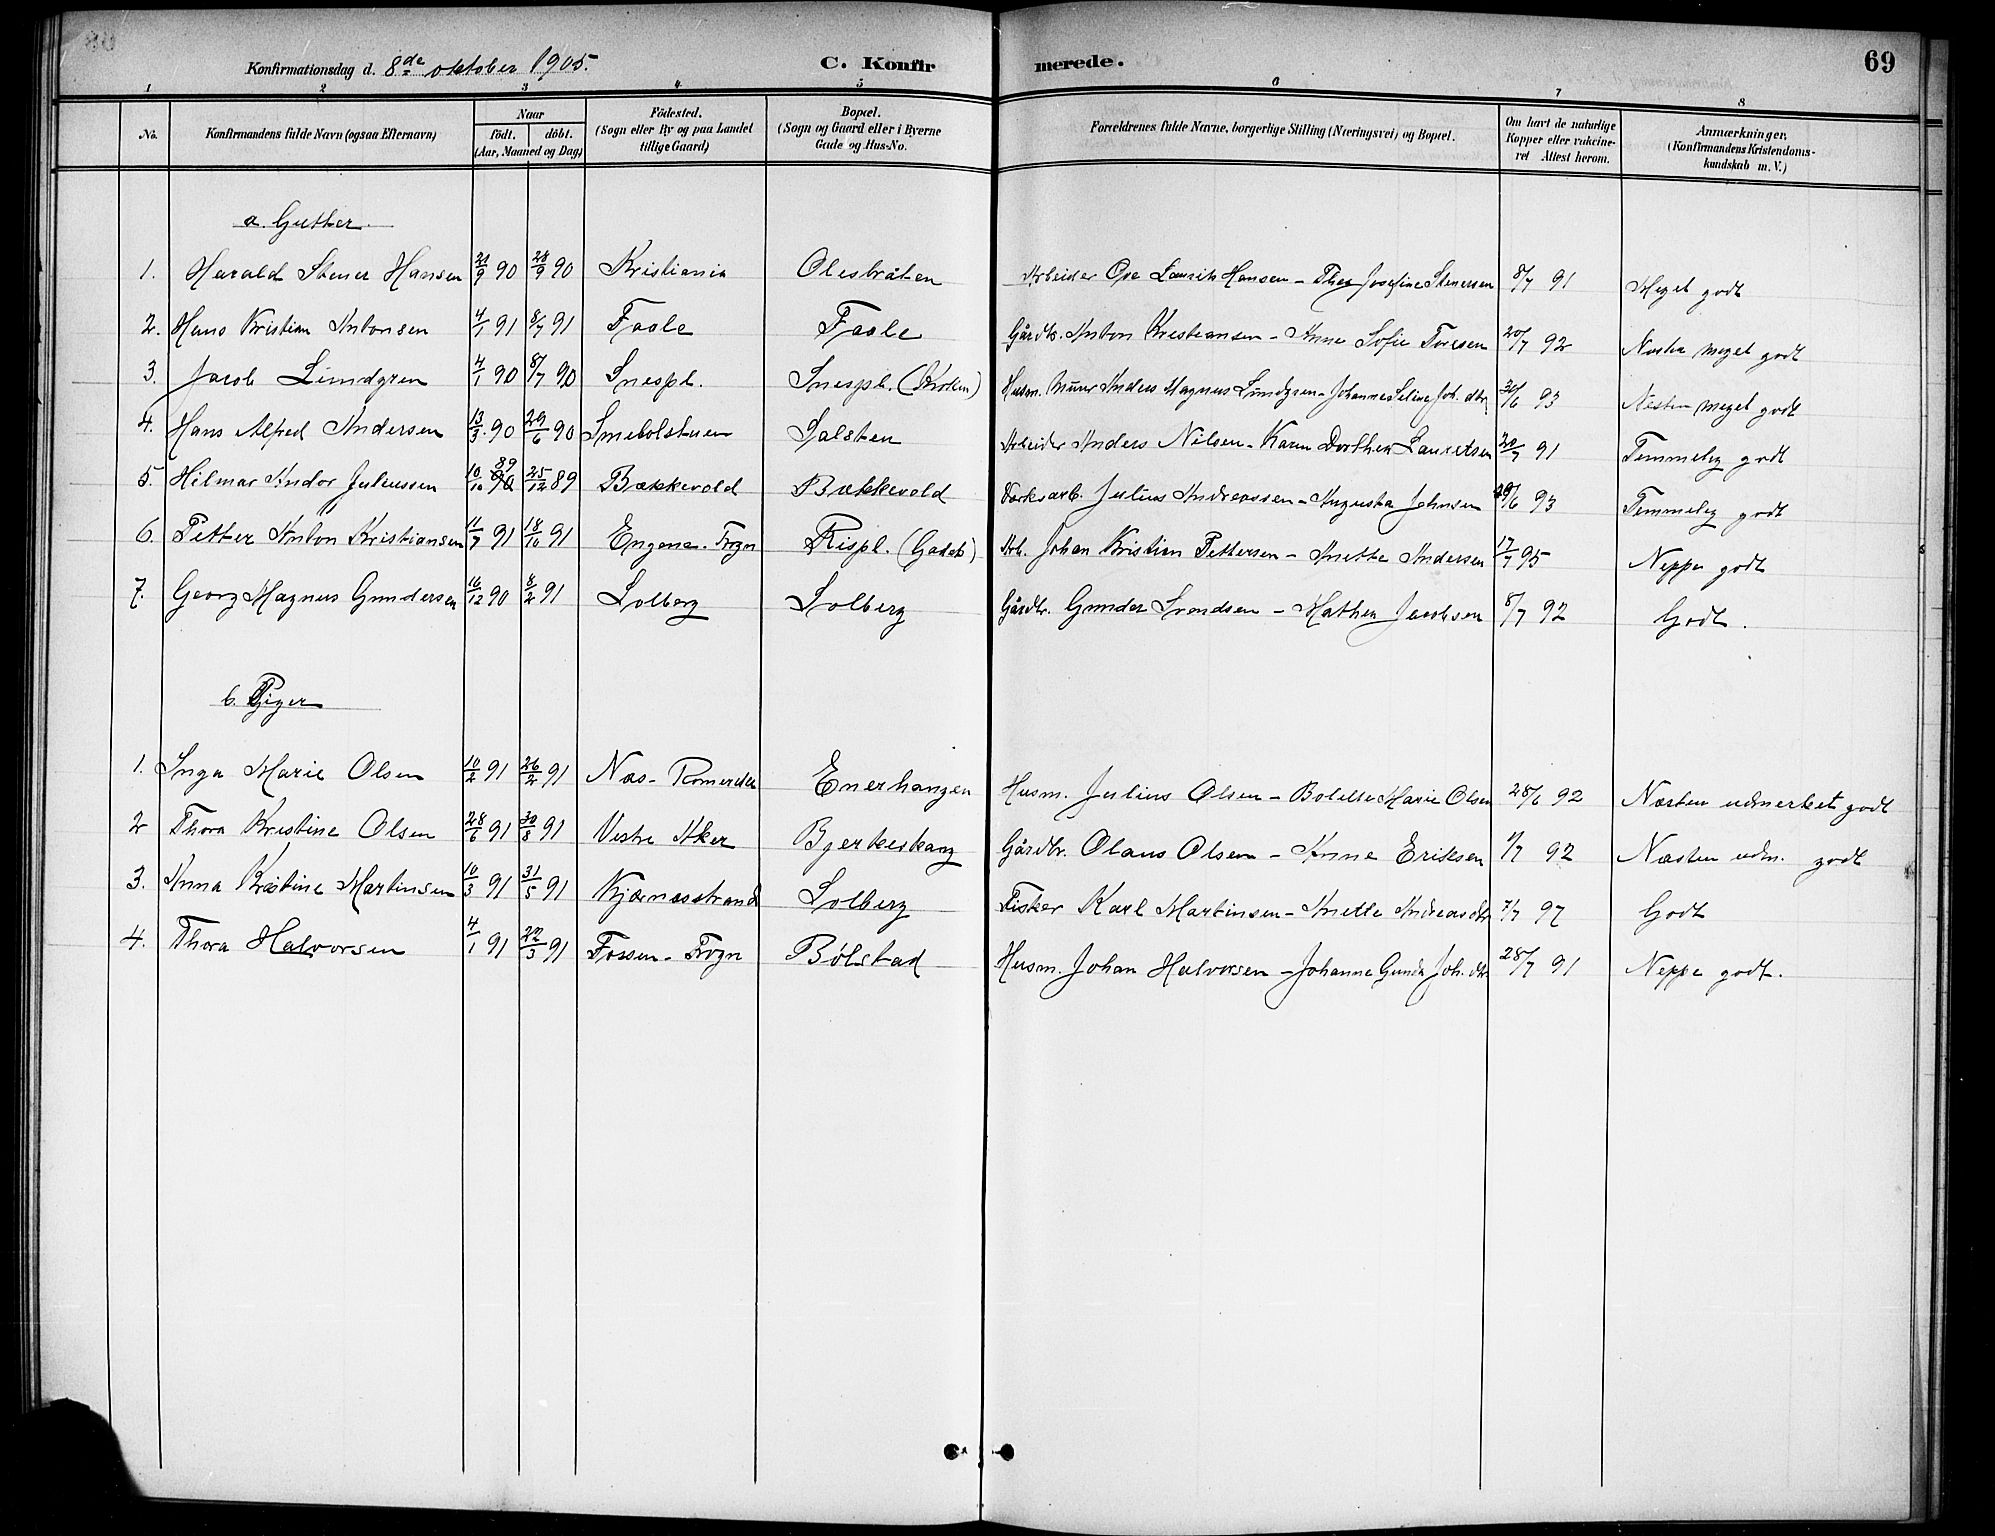 Konfirmationsdag d. 8de oktober 1905. C. Konfirmerede. 69
1 2 3 4 5 6 7 8
No. Konfirmandens fulde Navn (ogsaa Efternavn) Naar födt. döbt. (Aar, Maaned og Dag) Födested. (Sogn eller By og paa Landet tillige Gaard) Bopæl. (Sogn og Gaard eller i Byerne Gade og Hus-No. Forældrenes fulde Navne, borgerlige Stilling (Næringsvei) og Bopæl. Om havt de naturlige Kopper eller vakcineret Attest herom. Anmærkninger. (Konfirmandens Kristendomskundskab m. V.)
a. Gutter.
1. Harald Stener Hansen 21/9 90 28/9 90 Kristiania Olesbråten Arbeider Ove Laurits Hansen - Thea Josefine Stenersen 8/7 91 Meget godt
2. Hans Kristian Antonsen 4/1 91 8/7 91 Faale Faale Gårdb. Anton Kristiansen - Anne Sofie Toresen 20/7 92 Nesten meget godt
3. Jacob Lundgren 4/1 90 8/7 90 Snespl. Snespl. Husm. Murer Anders Magnus Lundgren - Johanne Seline Joh. dtr 30/6 93 Nesten meget godt
4. Hans Alfred Andersen 13/3 90 29/6 90 Smebolstuen Salsten Arbeider Anders Nilsen - Karen Dorthea Lauritsen 20/7 91 Temmelig godt
5. Hilmar Andor Juliussen 10/10 89 25/12 89 Bækkevold Bækkevold Værksarb. Julius Andreassen - Augusta Johnsen 29/6 93 Temmelig godt
6. Petter Anton Kristiansen 11/7 91 18/10 91 Engene. Frogn Rispl. Arb. Johan Kristian Pettersen - Anette Andersen 17/7 95 Neppe godt
7. Georg Magnus Gundersen 16/12 90 8/2 91 Solberg Solberg Gårdbr. Gunder Svendsen - Mathea Jacobsen 8/7 92 Godt.
b. Piger
1. Inga Marie Olsen 10/2 91 26/2 91 Næs - Romerike Enerhaugen Husm. Julius Olsen - Bolette Marie Olsen 28/6 92 Næsten udmerket godt
2 Thora Kristine Olsen 28/6 91 30/8 91 Vestre Aker Bjerkeskaug Gårdbr. Olaus Olsen - Anne Eriksen 1/7 92 Næsten udm. godt
3. Anna Kristine Martinsen 10/3 91 31/5 91 Kjærnesstrand Solberg Fisker Karl Martinsen - Anette Andreasdtr 7/7 97 Godt
4. Thora Halvorsen 4/1 91 22/3 91 Fossen - Frogn Bølstad Husm. Johan Halvorsen - Johanne Gunda Joh. dtr 28/7 91 Neppe godt.